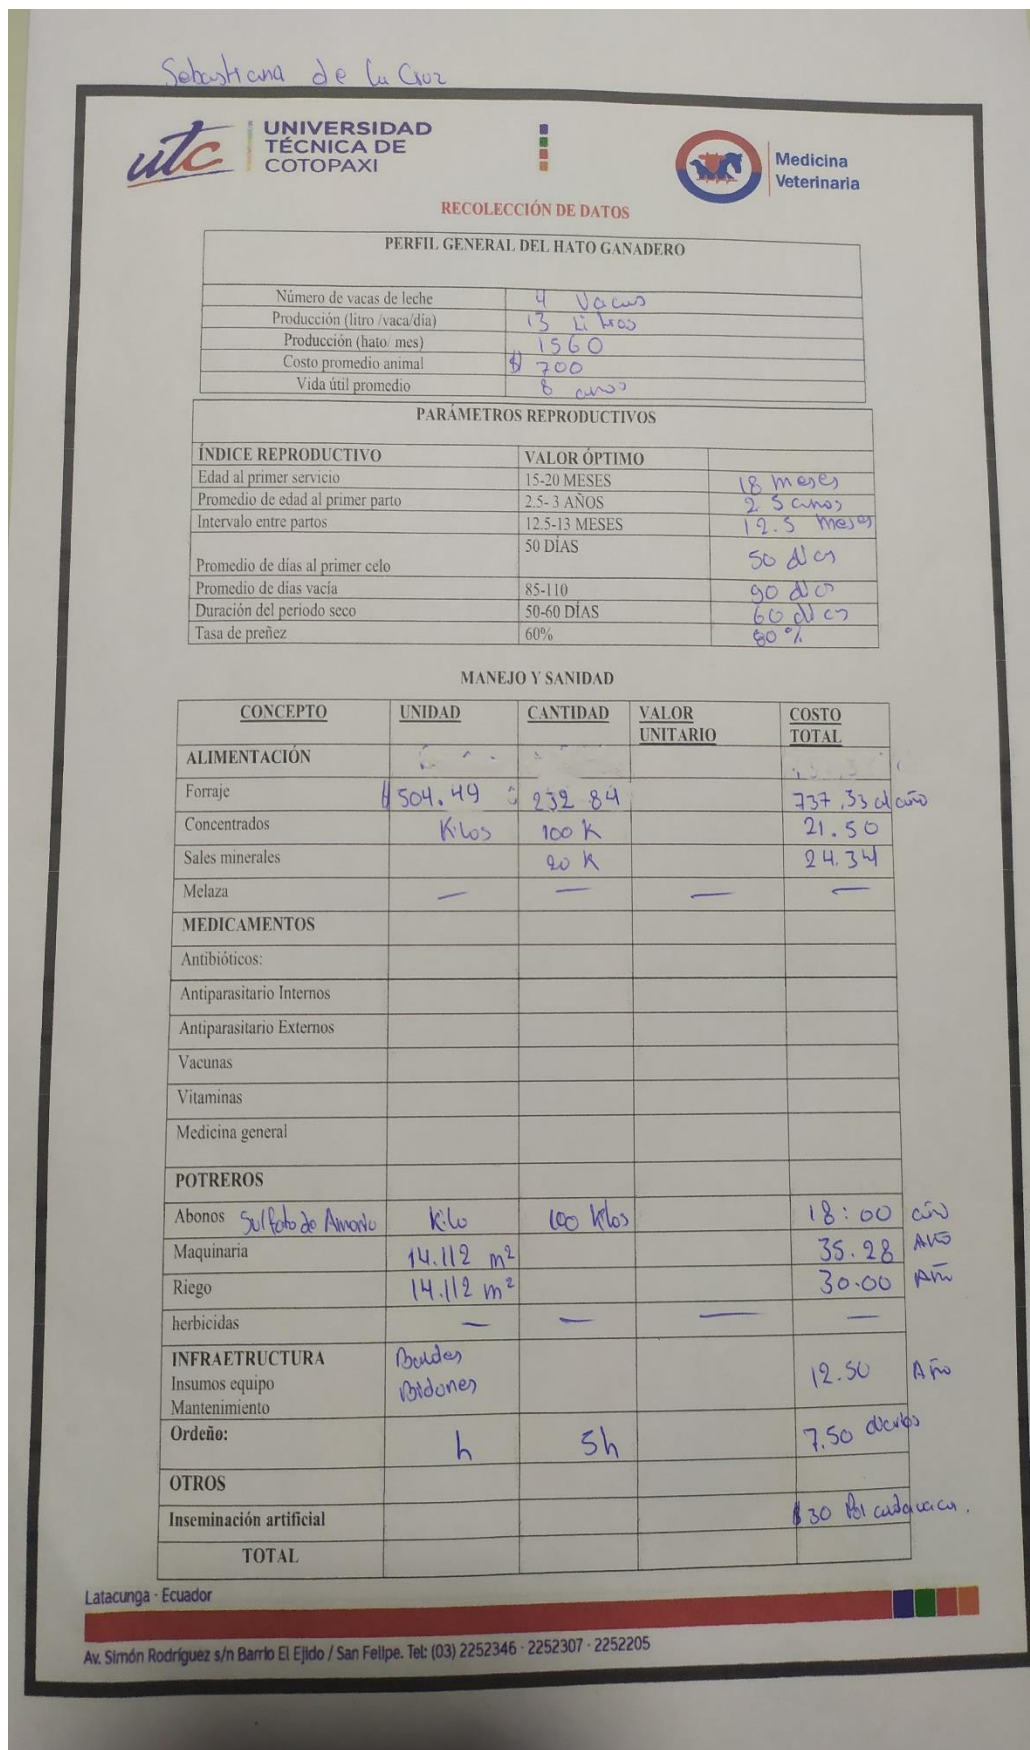 Sebastiana de la Cruz
utc UNIVERSIDAD
TÉCNICA DE
COTOPAXI
Medicina
Veterinaria
RECOLECCIÓN DE DATOS
PERFIL GENERAL DEL HATO GANADERO
Número de vacas de leche 4 Vacas
Producción (litro /vaca/día) 13 Litros
Producción (hato/ mes) 1560
Costo promedio animal $ 700
Vida útil promedio 8 anos
PARÁMETROS REPRODUCTIVOS
ÍNDICE REPRODUCTIVO VALOR ÓPTIMO
Edad al primer servicio 15-20 MESES 18 meses
Promedio de edad al primer parto 2.5- 3 AÑOS 2.5 anos
Intervalo entre partos 12.5-13 MESES 12.5 meses
Promedio de días al primer celo 50 DÍAS 50 dias
Promedio de días vacía 85-110 90 dias
Duración del periodo seco 50-60 DÍAS 60 dias
Tasa de preñez 60% 80%
MANEJO Y SANIDAD
CONCEPTO UNIDAD CANTIDAD VALOR UNITARIO COSTO TOTAL
ALIMENTACIÓN
Forraje $ 504.49 232 84 737,33 al año
Concentrados Kilos 100 K 21.50
Sales minerales 20 K 24.34
Melaza — — — —
MEDICAMENTOS
Antibióticos:
Antiparasitario Internos
Antiparasitario Externos
Vacunas
Vitaminas
Medicina general
POTREROS
Abonos Sulfato de Amonio Kilo 100 Kilos 18:00 año
Maquinaria 14.112 m² 35.28 Año
Riego 14.112 m² 30.00 Año
herbicidas — — — —
INFRAETRUCTURA Baldes
Insumos equipo Bidones 12.50 Año
Mantenimiento
Ordeño: h 5h 7.50 diarios
OTROS
Inseminación artificial $30 Por cada vaca.
TOTAL
Latacunga - Ecuador
Av. Simón Rodríguez s/n Barrio El Ejido / San Felipe. Tel: (03) 2252346 - 2252307 - 2252205